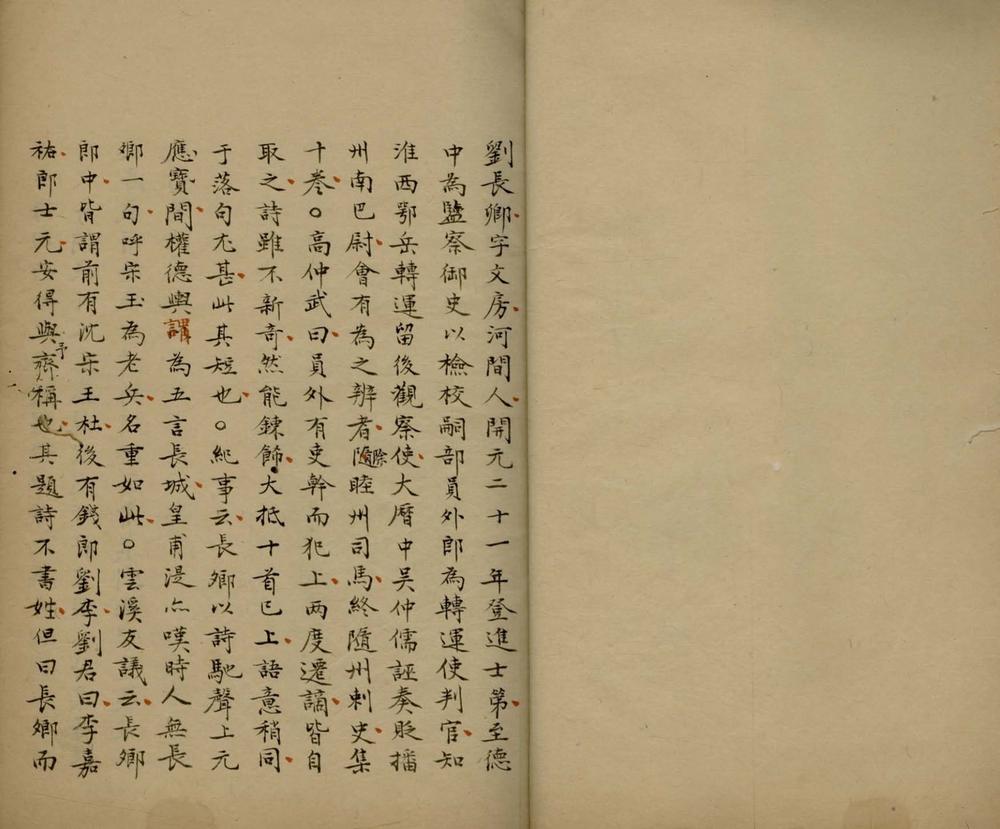 劉長卿字文房河間人開元二十一年登進士第至德
中為監察御史以檢校嗣部員外郎為轉運使判官知
淮西鄂岳轉運留後觀察使大曆中吳仲儒誣奏貶播
州南巴尉會有為之辨者隨除睦州司馬終隨州刺史集
十卷〇高仲武曰員外有吏幹而犯上两度遷謫皆自
取之詩雖不新奇然能鍊飾大抵十首已上語意稍同
于落句尤甚此其短也〇紀事云長卿以詩馳聲上元
應寶間權德輿謂為五言長城皇甫湜亦嘆時人無長
卿一句呼宋玉為老兵名重如此〇雲溪友議云長卿
郎中皆謂前有沈宋王杜後有錢郎劉李劉君曰李嘉
祐郎士元安得與予齊稱也其題詩不書姓但曰長卿而